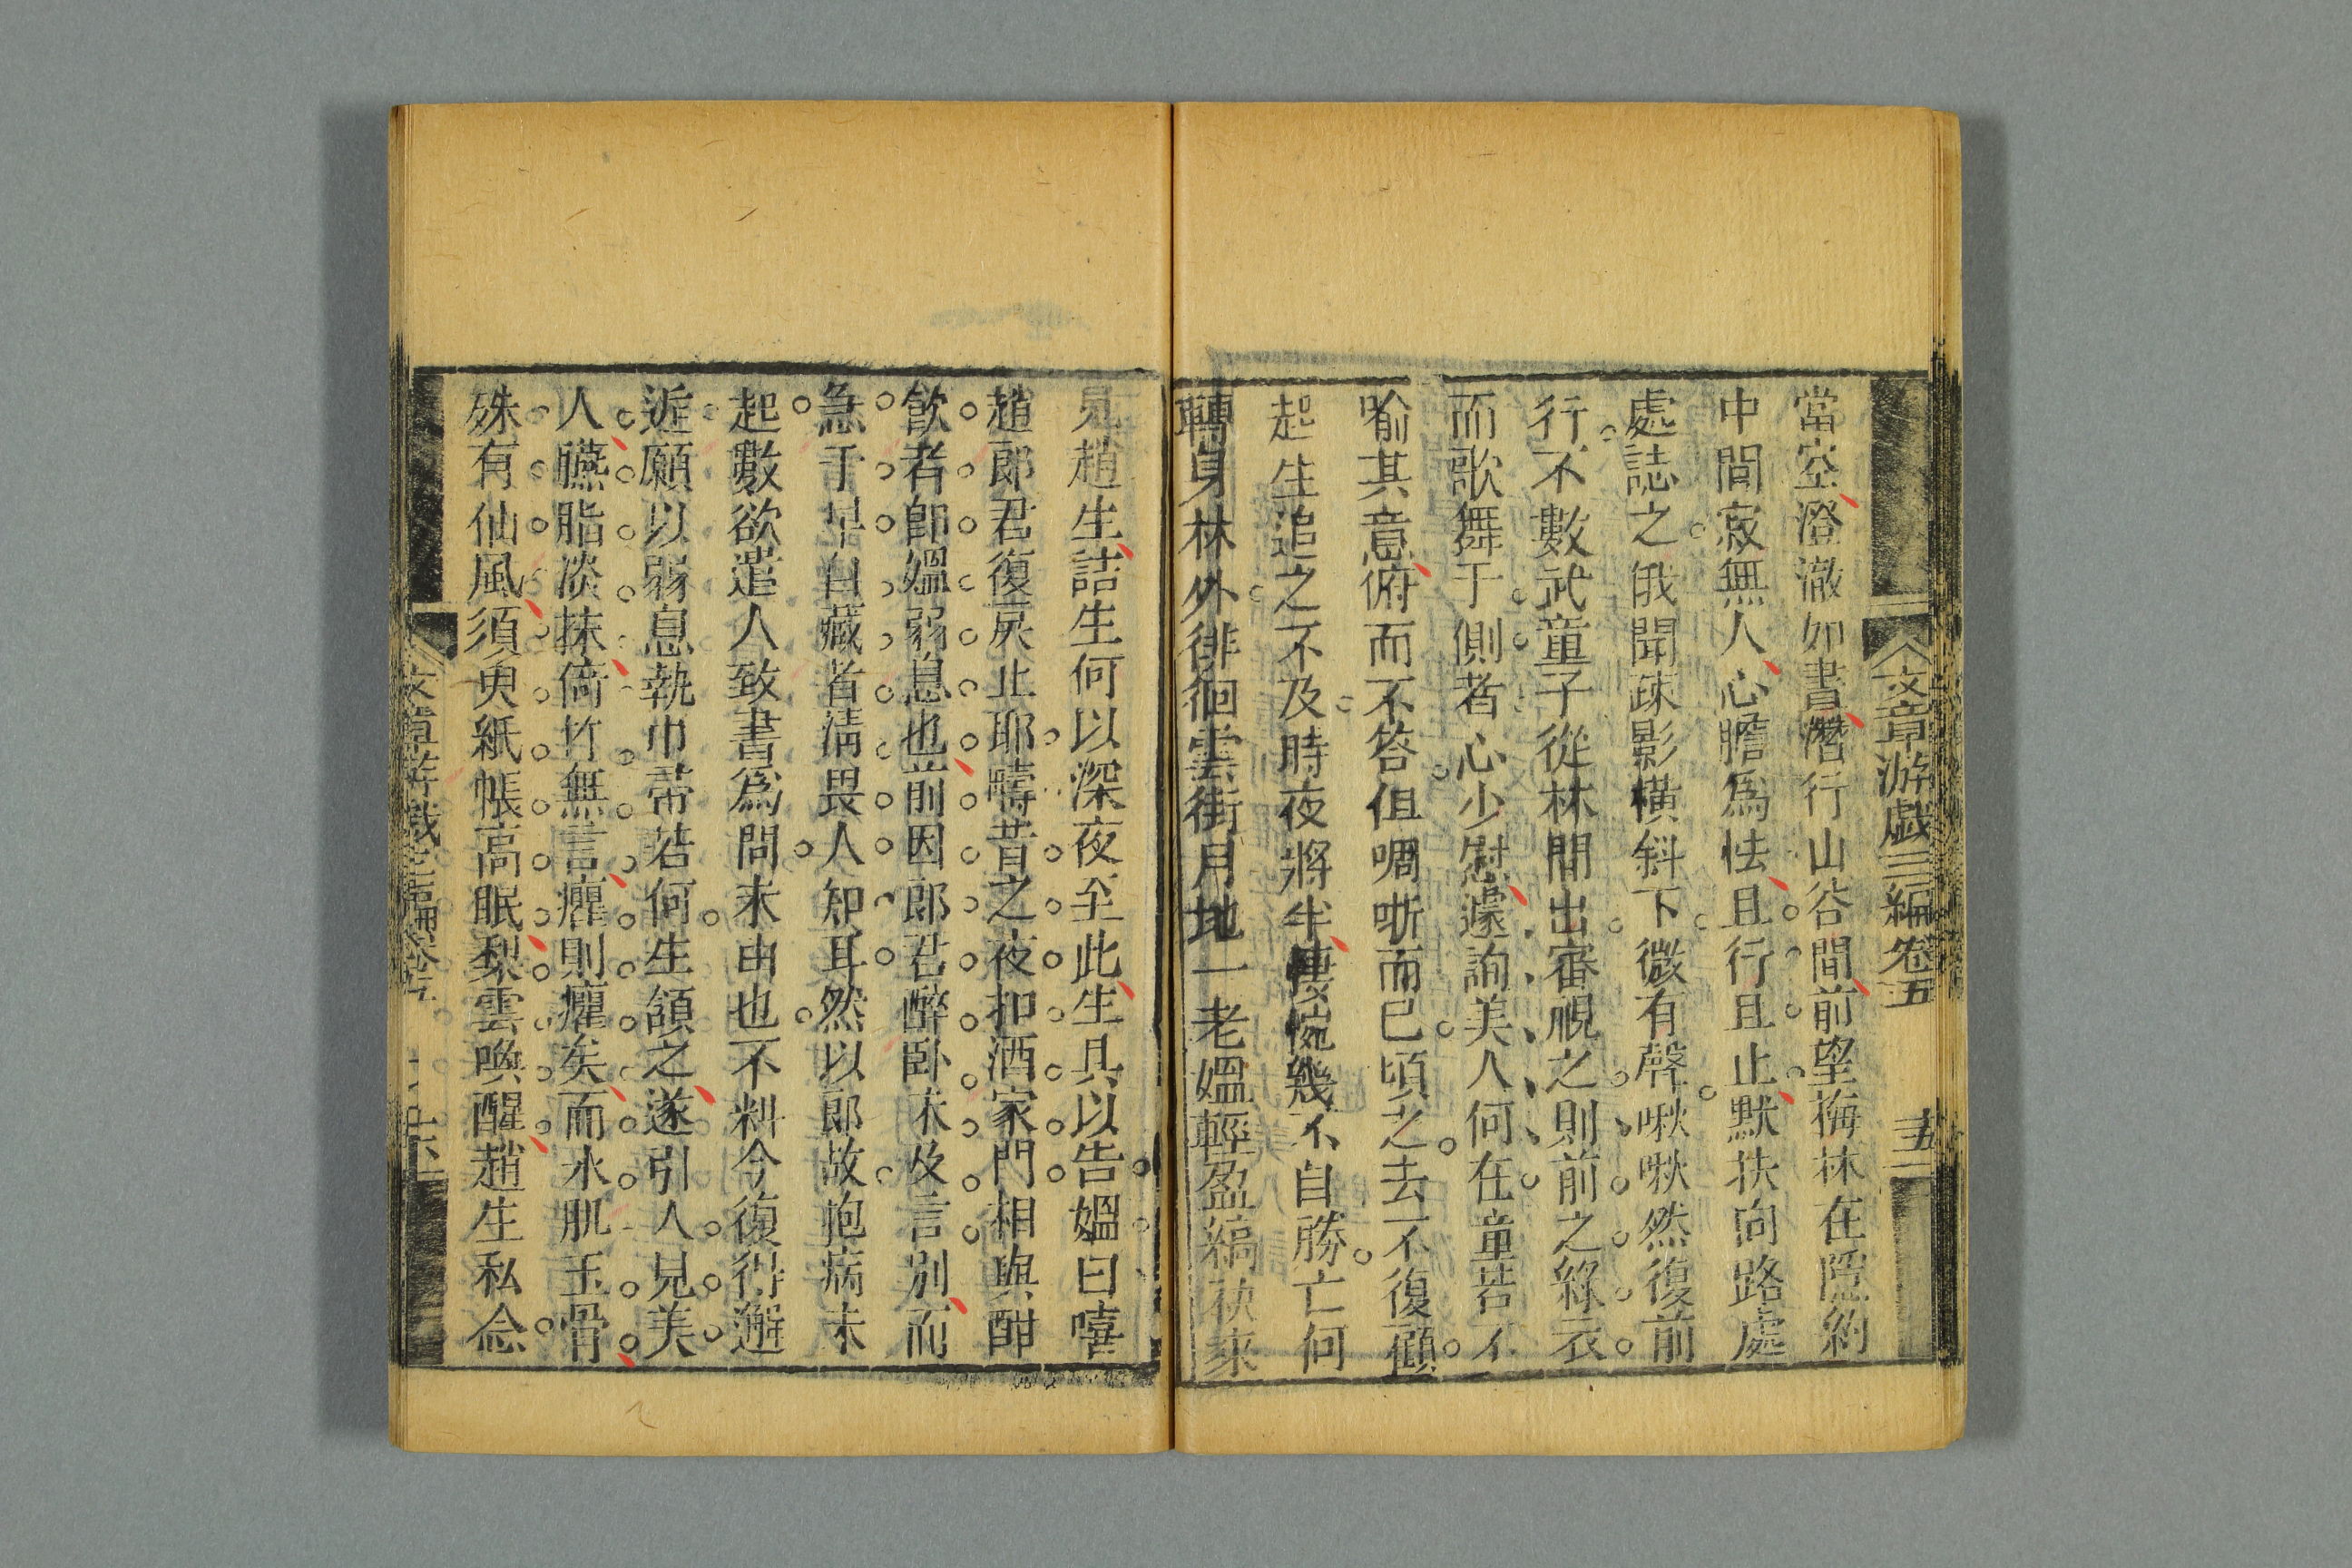 文章游戯三編卷五
當空澄澈如晝潛行山谷間前望梅林在隱約
中間寂無人心膽為怯且行且止默扶向路處
處誌之俄聞疎影橫斜下微有聲啾啾然復前
行不數武童子從林間出審視之則前之綠衣
而歌舞于側者心少慰遽詢美人何在童若不
喻其意俯而不答但啁哳而已頃之去不復顧
起生追之不及時夜將半悽惋幾不自勝亡何
轉身林外徘徊雲街月地一老媼輕盈縞袂來
見趙生詰生何以深夜至此生具以告媼曰嘻
趙郎君復戾止耶疇昔之夜扣酒家門相與酣
飲者卽媼弱息也前因郎君醉卧未及言別而
急于早自藏者淸畏人知耳然以郎故抱病未
起數欲遣人致書為問未由也不料今復得邂
近願以弱息執巾帚若何生頷之遂引入見美
人臙脂淡抹倚竹無言癯則癯矣而氷肌玉骨
殊有仙風須臾紙帳高眠梨雲喚醒趙生私念